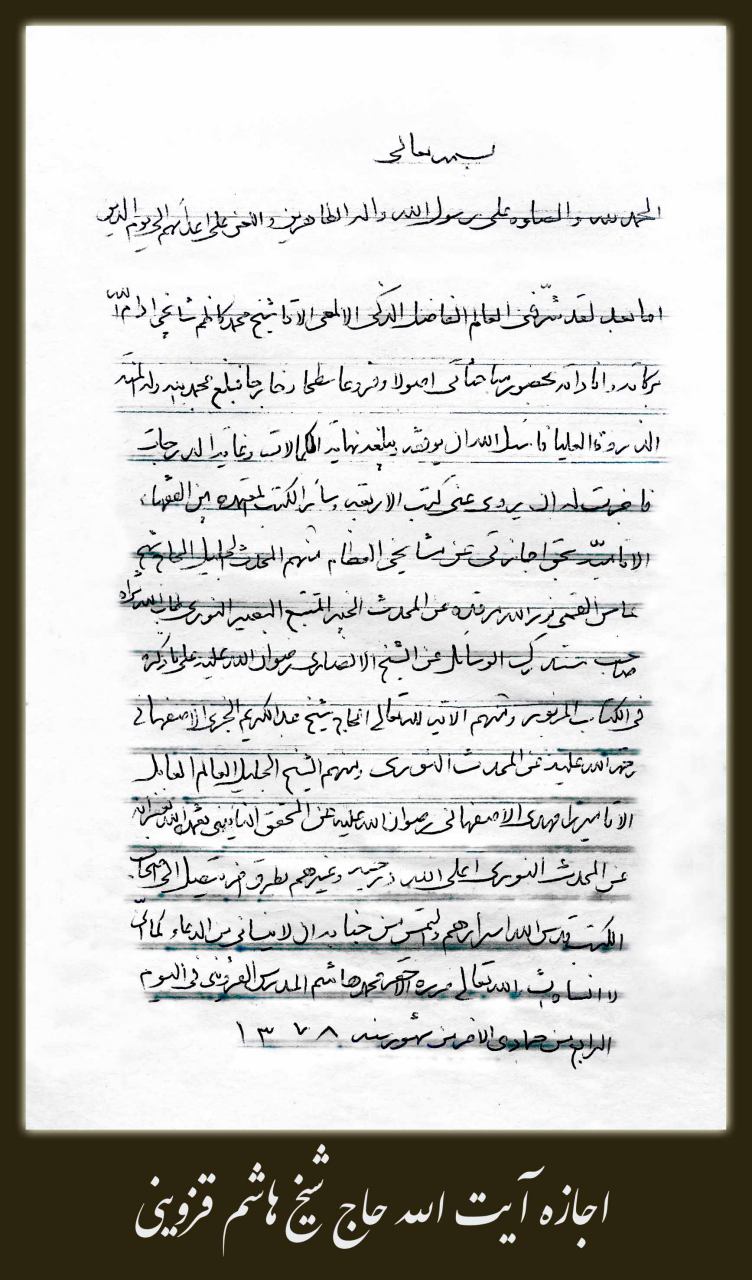 بسمه تعالی
الحمد لله والصلوه علی رسول الله واله الطاهرین واللعن علی اعدائهم الی یوم الدین
اما بعد لقد شرّفنی العالم الفاضل الذکی الالمعی الاقا شیخ محمد کاظم ادام الله
برکاته وافاداته بحضور مباحثاتی اصولا وفروعا سطحا وخارجا فبلغ بحمد الله وله المنه
الذروة العلیا فاسئل الله ان یوفقه یبلغه نهایه الکمالات وغایه الدرجات
فاجزت له ان یروی عنی کتب الاربعه وسائر الکتب المعتمده من الفقهاء
الامامیّه بحق اجازتی عن مشایخی العظام منهم المحدث الجلیل الحاج شیخ
عباس القمی نور الله مرقده عن المحدث الخبیر المتتبع البصیر النوری طاب الله ثراه
صاحب مستدرک الوسائل عن الشیخ الانصاری رضوان الله علیه علی ما ذکره
فی الکتاب المزبور ومنهم الایه لله تعالی الحاج شیخ عبد الکریم الجزی الاصفهانی
رحمه الله علیه عن المحدث النوری ومنهم الشیخ الجلیل العالم العامل
الاقا میرزا مهدی الاصفهانی رضوان الله علیه عن المحقق النایینی تغمده الله بغفرانه
عن المحدث النوری اعلی الله وغیرهم بطرق اخر یتصل الی اصحاب
الکتب قدس الله اسرارهم والتمس من جنابه ان لا ینسانی من الدعاء کما انّی
لا انساه ان شاء الله تعالی حرره الاحقر محمد هاشم المدرس القزوینی فی الیوم
الرابع من جمادی الاخر من شهور سنه ۱۳۷۸
اجازه آیت الله حاج شیخ هاشم قزوینی